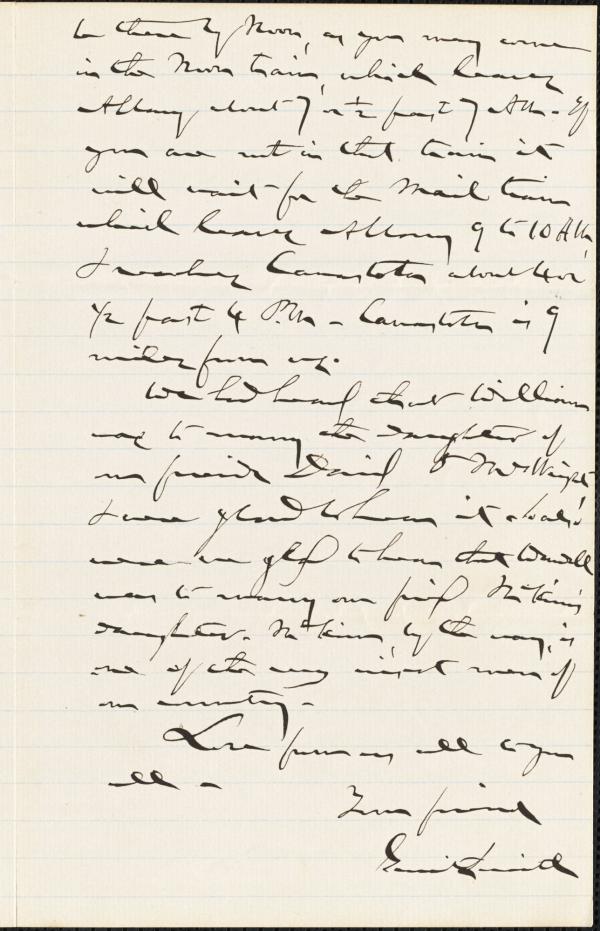 be there by Noon, as you may come
in the Noon train, which leaves
Albany about 7 or ½ past 7 A.M. If
you are not in that train it
will wait for the Mail train
which leaves Albany 9 to 10 A.M.
& reaches Canastota about 4 or
½ past 4 P.M. – Canastota is 9
miles from us.
We had heard that William
was to marry the daughter of
our friends David & Mrs Wright
& were glad to hear it.
were we glad to hear that Wendell
was to marry our friend McKim's
daughter. McKim, by the way, is
one of the very wisest men of
our country –
Love from us all to you
all –
Your friend
Gerrit Smith